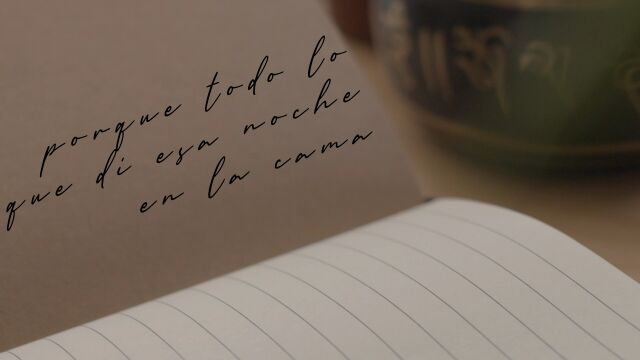 porque todo lo
que di esa noche
en la cama